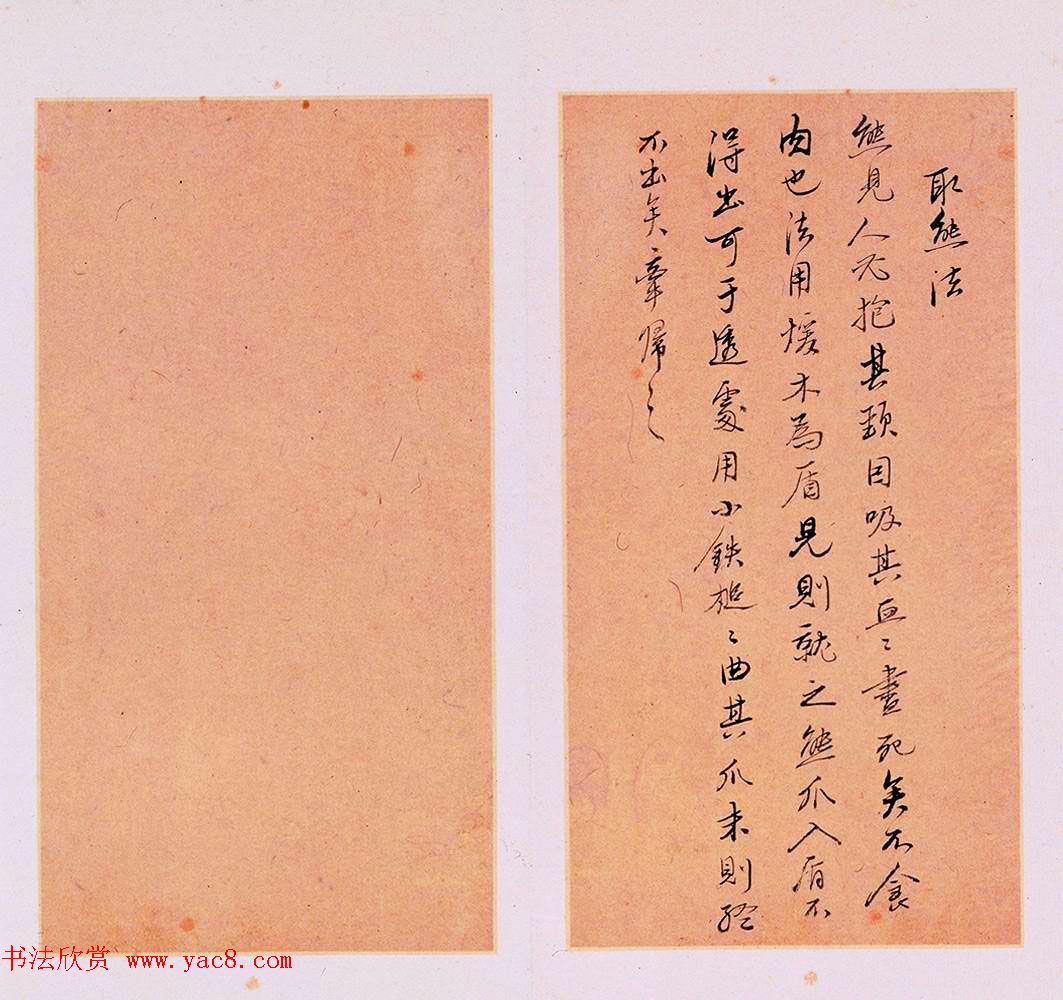 取熊法
熊見人抱其頸因吸其血〻盡死矣不食
肉也法用煖木為盾見則就之熊爪入盾不
得出可于透處用小鉄槌〻曲其爪末則終
不出矣牽歸之
书法欣赏 www.yac8.com